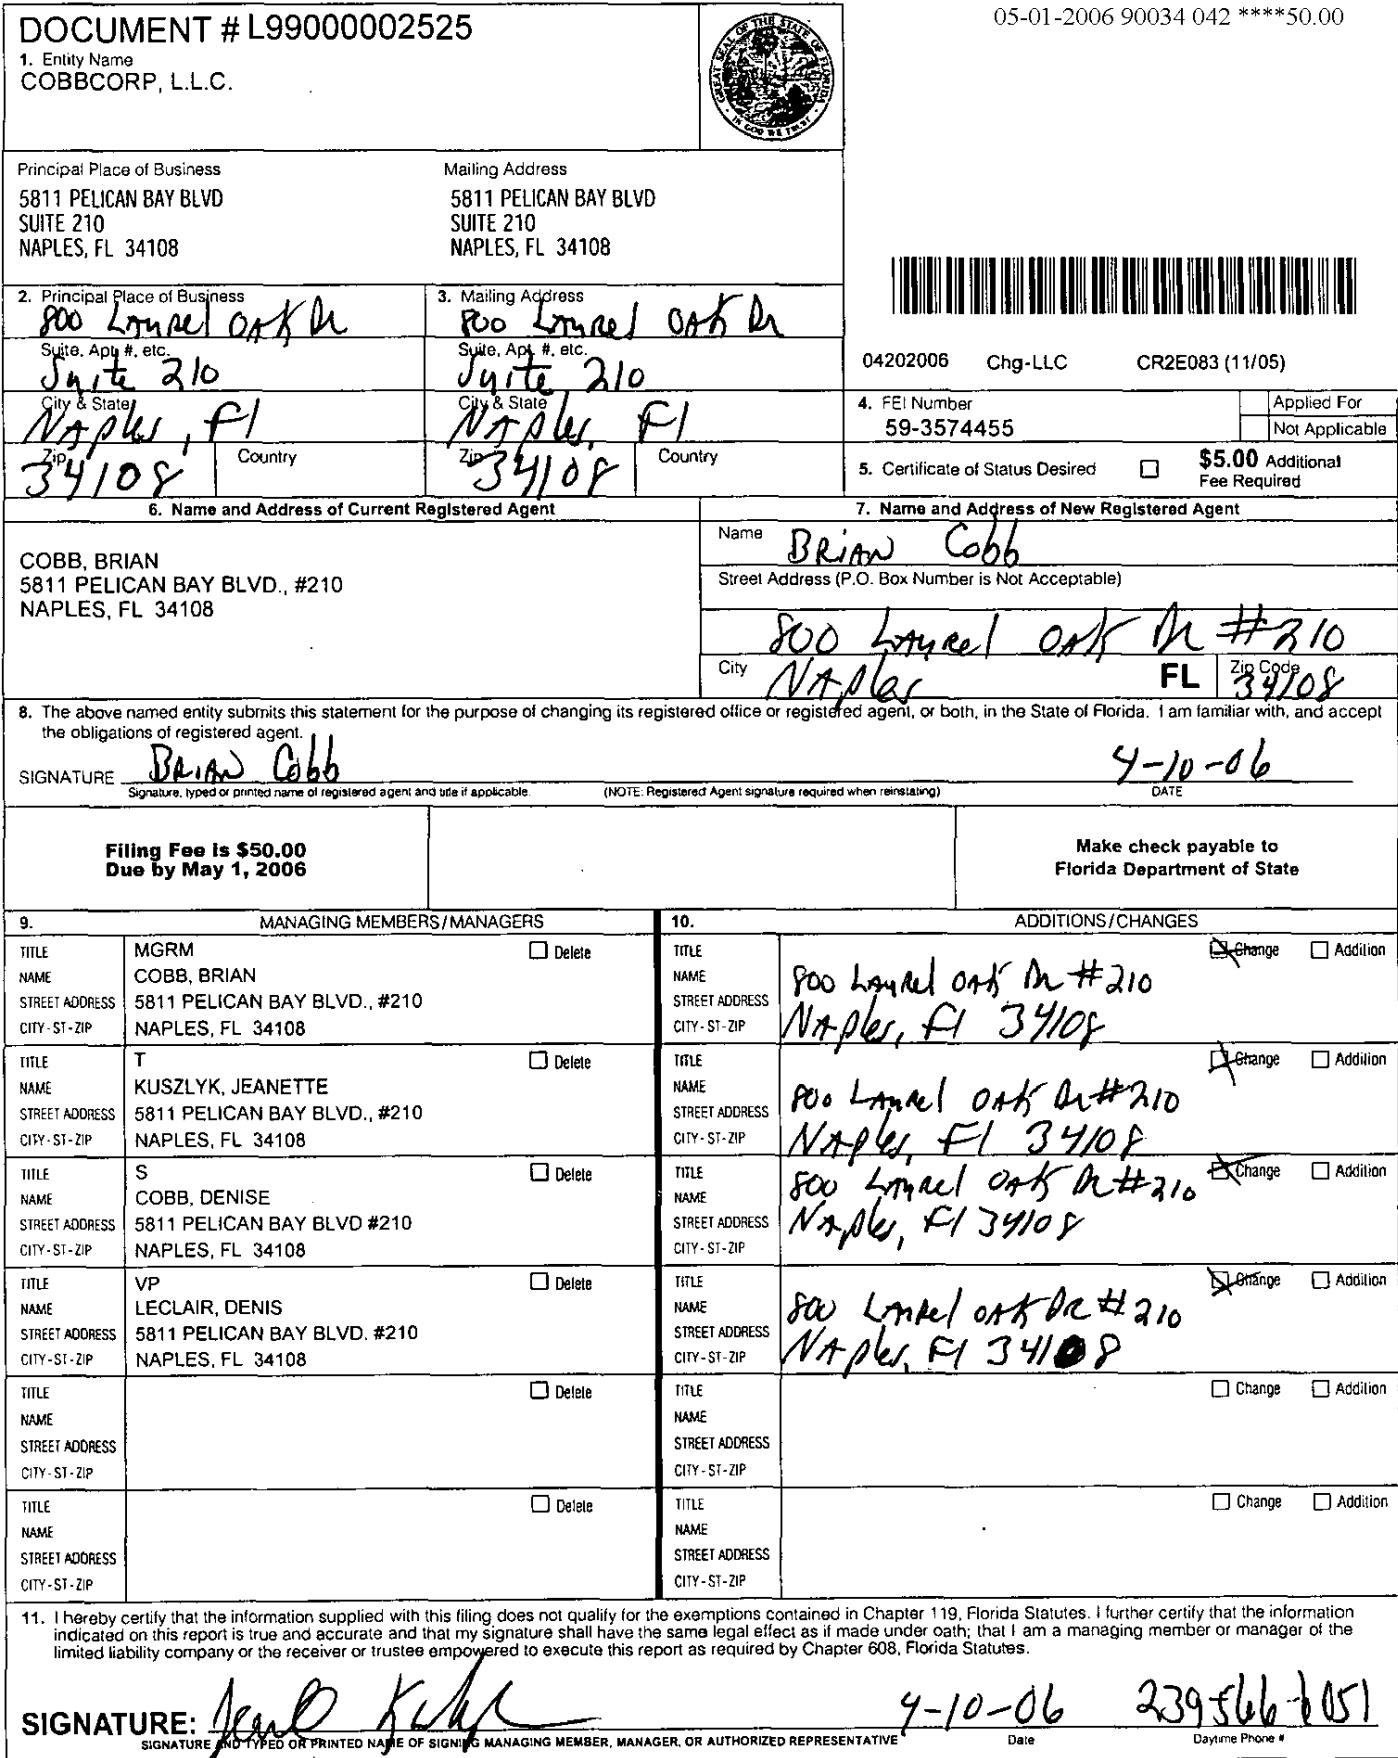 DOCUMENT # L99000002525
05-01-2006 90034 042 ****50.00
1. Entity Name
COBBCORP, L.L.C.
GREAT SEAL OF THE STATE OF FLORIDA
IN GOD WE TRUST
Principal Place of Business
5811 PELICAN BAY BLVD
SUITE 210
NAPLES, FL 34108
Mailing Address
5811 PELICAN BAY BLVD
SUITE 210
NAPLES, FL 34108
2. Principal Place of Business
800 Laurel Oak Dr
Suite, Apt. #, etc.
Suite 210
City & State
Naples, Fl
Zip
34108
Country
3. Mailing Address
800 Laurel Oak Dr
Suite, Apt. #, etc.
Suite 210
City & State
Naples, Fl
Zip
34108
Country
04202006 Chg-LLC CR2E083 (11/05)
4. FEI Number
59-3574455
Applied For
Not Applicable
5. Certificate of Status Desired
$5.00 Additional
Fee Required
6. Name and Address of Current Registered Agent
COBB, BRIAN
5811 PELICAN BAY BLVD., #210
NAPLES, FL 34108
7. Name and Address of New Registered Agent
Name Brian Cobb
Street Address (P.O. Box Number is Not Acceptable)
800 Laurel Oak Dr #210
City Naples FL Zip Code 34108
8. The above named entity submits this statement for the purpose of changing its registered office or registered agent, or both, in the State of Florida. I am familiar with, and accept
the obligations of registered agent.
SIGNATURE Brian Cobb 4-10-06
Signature, typed or printed name of registered agent and title if applicable. (NOTE: Registered Agent signature required when reinstating) DATE
Filing Fee is $50.00
Due by May 1, 2006
Make check payable to
Florida Department of State
9. MANAGING MEMBERS/MANAGERS
TITLE MGRM Delete
NAME COBB, BRIAN
STREET ADDRESS 5811 PELICAN BAY BLVD., #210
CITY-ST-ZIP NAPLES, FL 34108
TITLE T Delete
NAME KUSZLYK, JEANETTE
STREET ADDRESS 5811 PELICAN BAY BLVD., #210
CITY-ST-ZIP NAPLES, FL 34108
TITLE S Delete
NAME COBB, DENISE
STREET ADDRESS 5811 PELICAN BAY BLVD #210
CITY-ST-ZIP NAPLES, FL 34108
TITLE VP Delete
NAME LECLAIR, DENIS
STREET ADDRESS 5811 PELICAN BAY BLVD. #210
CITY-ST-ZIP NAPLES, FL 34108
TITLE Delete
NAME
STREET ADDRESS
CITY-ST-ZIP
TITLE Delete
NAME
STREET ADDRESS
CITY-ST-ZIP
10. ADDITIONS/CHANGES
TITLE Change Addition
NAME 800 Laurel Oak Dr #210
STREET ADDRESS
CITY-ST-ZIP Naples, Fl 34108
TITLE Change Addition
NAME
STREET ADDRESS 800 Laurel Oak Dr #210
CITY-ST-ZIP Naples, Fl 34108
TITLE Change Addition
NAME 800 Laurel Oak Dr #210
STREET ADDRESS Naples, Fl 34108
CITY-ST-ZIP
TITLE Change Addition
NAME 800 Laurel Oak Dr #210
STREET ADDRESS
CITY-ST-ZIP Naples, Fl 34108
TITLE Change Addition
NAME
STREET ADDRESS
CITY-ST-ZIP
TITLE Change Addition
NAME
STREET ADDRESS
CITY-ST-ZIP
11. I hereby certify that the information supplied with this filing does not qualify for the exemptions contained in Chapter 119, Florida Statutes. I further certify that the information
indicated on this report is true and accurate and that my signature shall have the same legal effect as if made under oath; that I am a managing member or manager of the
limited liability company or the receiver or trustee empowered to execute this report as required by Chapter 608, Florida Statutes.
SIGNATURE: 4-10-06 239 566-6051
SIGNATURE AND TYPED OR PRINTED NAME OF SIGNING MANAGING MEMBER, MANAGER, OR AUTHORIZED REPRESENTATIVE Date Daytime Phone #